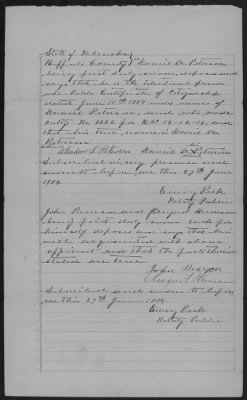 State of Nebraska
Buffalo County } ss Daniel A. Peterson
being first duly sworn deposes and
says that he is the identical person
who holds Certificate of Citizenship
dated June 10th 1884 under name of
Daniel Peterson, and who made
entry No
that his true name is Daniel A.
Peterson
Daniel A. Peterson
Subscribed in my presence and
sworn to before me this 27th June
1884.
Emory Peck
Notary Public
John and August
being first duly sworn each for
himself deposes and says that he is
well acquainted with above
affiant and that the facts therein
stated are true.
John
August
Subscribed and sworn to before
me this 27th June 1884
Emory Peck
Notary Public